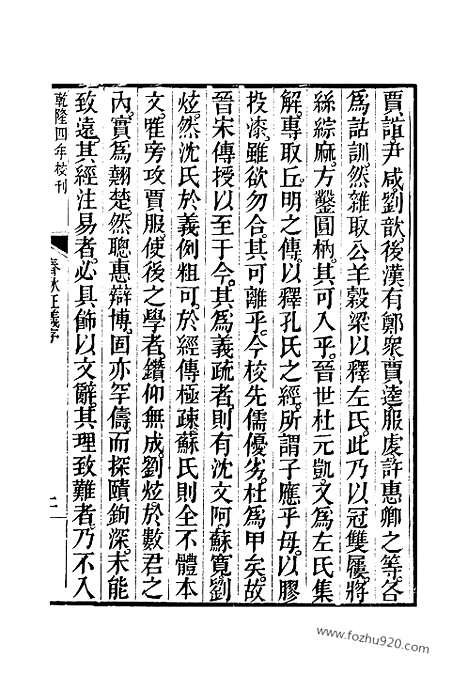 賈誼尹咸劉歆後漢有鄭衆賈逵服虔許惠卿之等各
爲詁訓然雜取公羊穀梁以釋左氏此乃以冠雙屨將
絲綜麻方鑿圓枘其可入乎晉世杜元凱又爲左氏集
解專取丘明之傳以釋孔氏之經所謂子應乎母以膠
投漆雖欲勿合其可離乎今校先儒優劣杜爲甲矣故
晉宋傳授以至于今其爲義疏者則有沈文阿蘇寬劉
炫然沈氏於義例粗可於經傳極疎蘇氏則全不體本
文唯旁攻賈服使後之學者鑽仰無成劉炫於數君之
內實爲翹楚然聰惠辯博固亦罕儔而探賾鉤深未能
致遠其經注易者必具飾以文辭其理致難者乃不入
乾隆四年校刊
春秋正義序
二
www.fozhu920.com